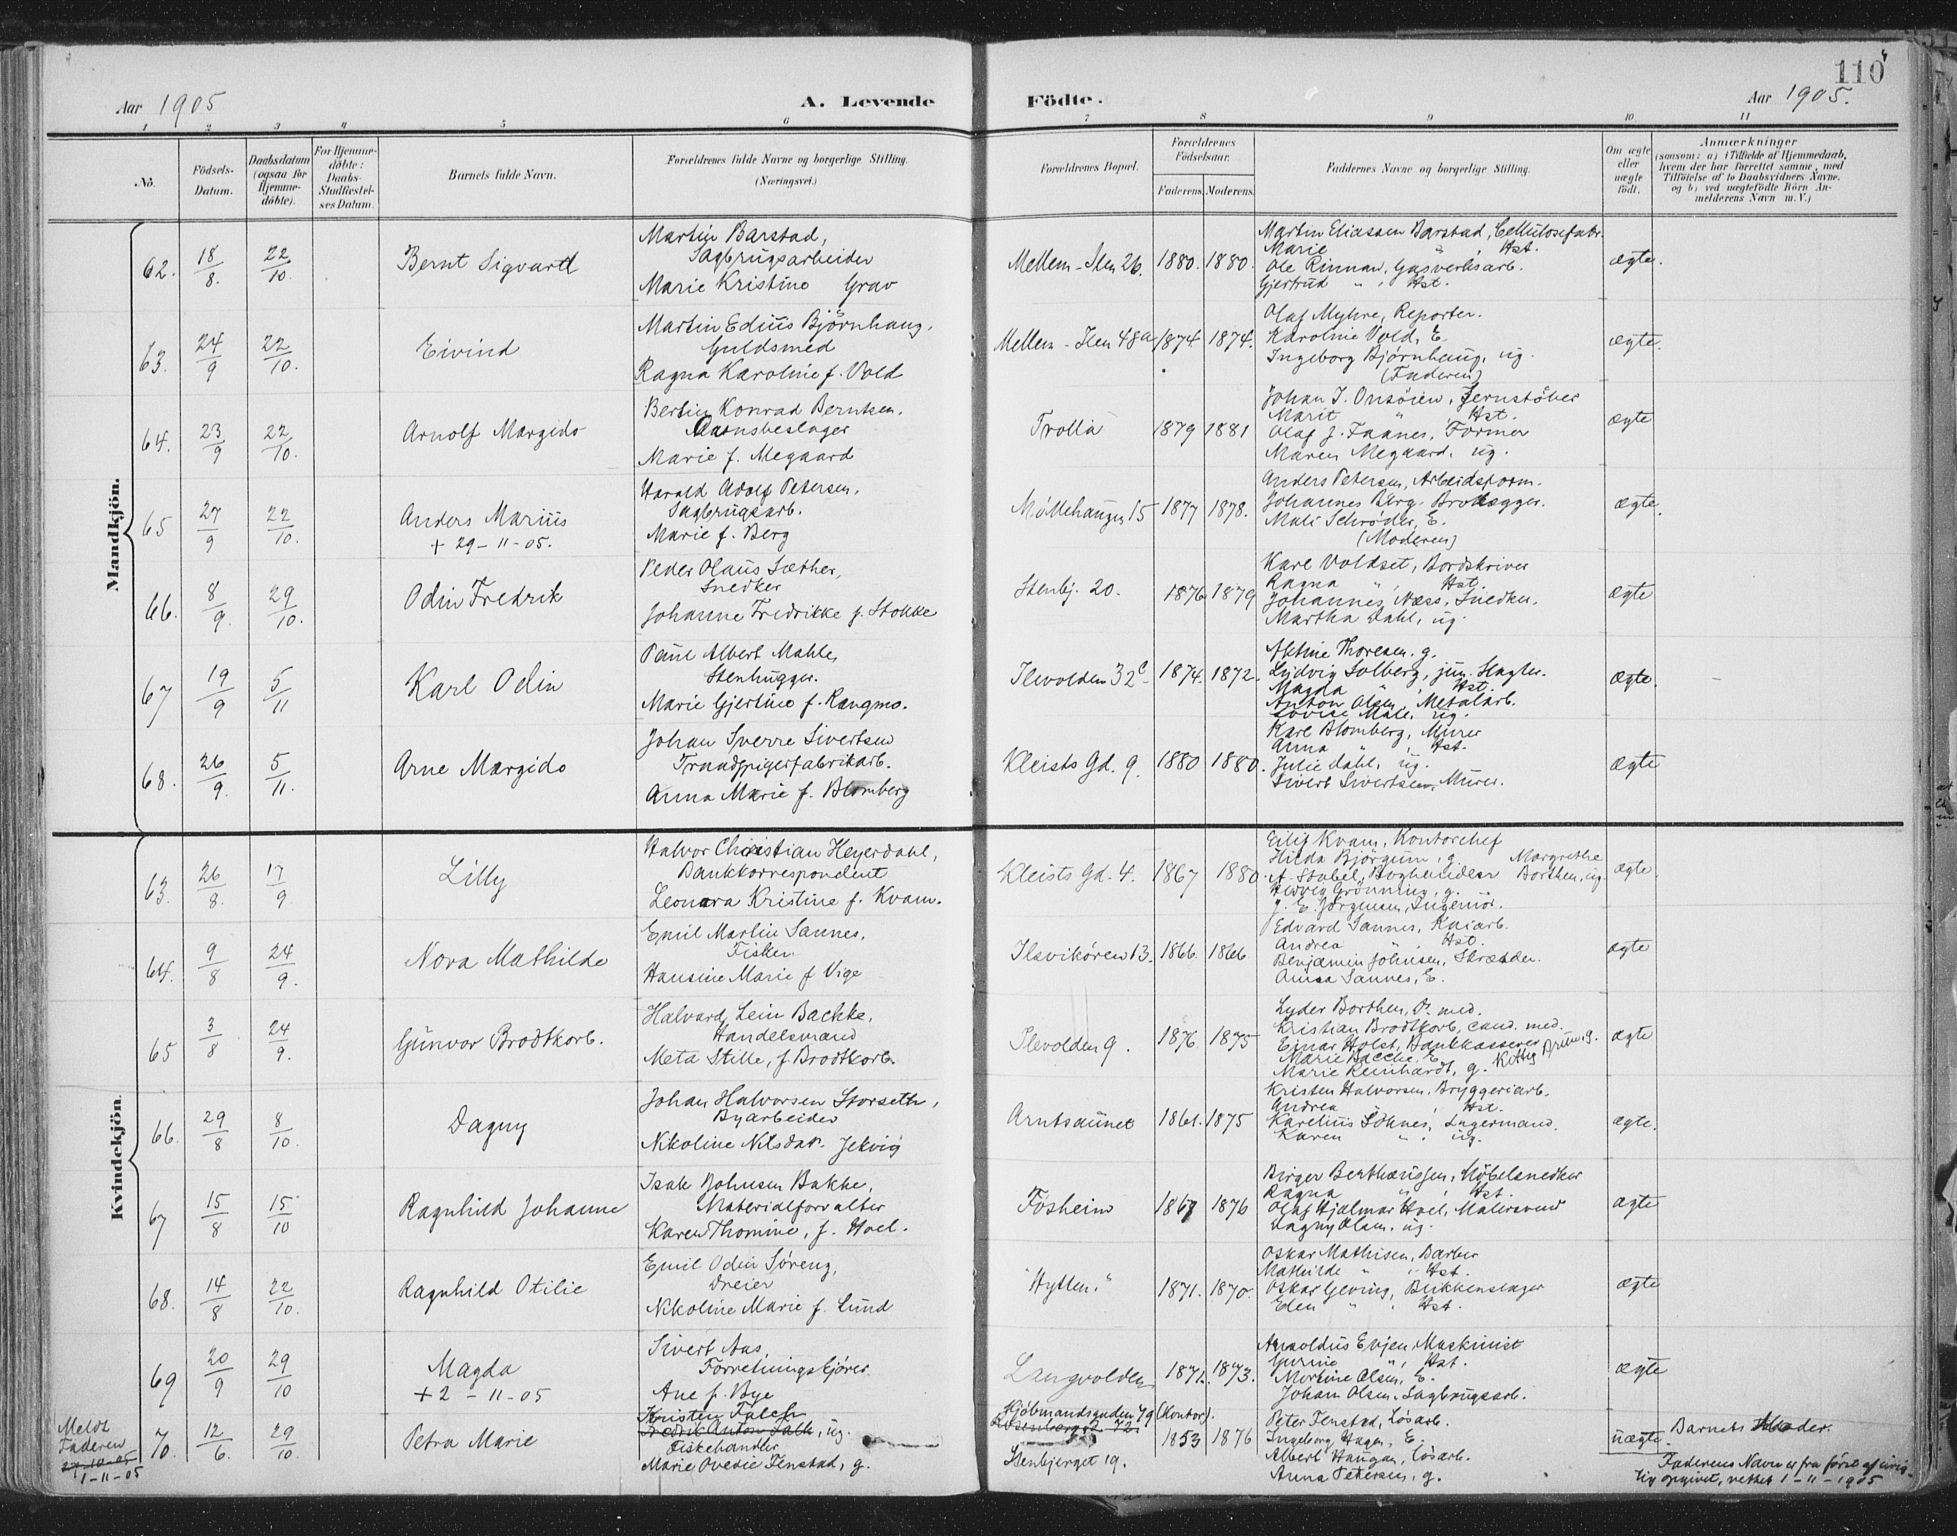 110
Aar 1905
A. Levende
Födte.
Aar 1905.
1 2 3 4 5 6 7 8 9 10 11
No.
Födsels-Datum.
Daabsdatum (ogsaa for Hjemme-döbte).
For Hjemme-döbte: Daabs-Stadfæstel-ses Datum.
Barnets fulde Navn.
Forældrenes fulde Navne og borgerlige Stilling.
(Næringsvei.)
Forældrenes Bopæl.
Forældrenes Födselsaar.
Faderens. Moderens.
Faddernes Navne og borgerlig Stilling.
Om ægte eller uægte födt.
Anmærkninger
(saasom: a) i Tilfælde af Hjemmedaab,
hvem der har forrettet samme, med
Tilföielse af to Daabsvidners Navne,
og b) ved uægtefödte Börn An-
melderens Navn m. V.)
Mandkjön.
62. 18/8. 22/10. Bernt Sigvart
Martin Barstad,
Sagbrugsarbeider
Marie Kristine Grav
Mellem-Ilen 26. 1880. 1880.
Martin Eliassen Barstad, Cellulosefabr.
Marie " , Hst.
Ole Rinnan, Gasverksarb.
Gjertrud " , Hst.
ægte.
63. 24/9 22/10. Eivind
Martin Edius Bjørnhaug,
Guldsmed
Ragna Karoline f. Vold
Mellem-Ilen 48a 1874. 1874.
Olaf Myhre, Reporter.
Karoline Vold, E.
Ingeborg Bjørnhaug, ug.
(Faderen)
ægte.
64. 23/9 22/10. Arnolf Margido
Bertin Konrad Berntsen,
Marie f. Megaard
Trolla 1879 1881
Johan J. Onsöien, Jernstöber
Marit " , Hst.
Olaf J. Faanes, Former
Maren Megaard, ug.
ægte
65 27/9 22/10. Anders Marius
+ 29-11-05.
Harald Adolf Petersen,
Sagbrugsarb.
Marie f. Berg
Møllehaugen 15 1877 1878.
Anders Petersen, Arbeidsform.
Johannes Berg, Brolægger.
Mali Schrøder, E.
(Moderen)
ægte.
66. 8/9. 29/10. Odin Fredrik
Peder Olaus Sæther,
Snedker
Johanne Fredrikke f. Stokke
Stenbj. 20. 1876 1879
Kare Voldset, Bordskriver
Ragna " , Hst.
Johannes Næss, Snedker.
Martha Dahl, ug.
ægte
67 19/9 5/11 Karl Odin
Paul Albert Mahle,
Stenhugger.
Marie Gjertine f. Rangmo.
Ilevolden 32c 1874. 1872.
Thoresen, g.
Ludvig Solberg, jun.
Magda " , Hst.
Anton Olsen, Metalarb.
Lovise Male, ug.
ægte.
68. 26/9. 5/11. Arne Margido
Johan Sverre Sivertsen
Traadspigerfabrikarb.
Anna Marie f. Blomberg
Kleists Gd. 9. 1880 1880.
Kare Blomberg, Murer
Anna " , Hst.
Julie Dahl, ug.
Sivert Sivertsen, Murer.
ægte
Kvindekjön.
63. 26/8. 17/9 Lilly
Halvor Christian Heyerdahl,
Bankkorrespondent
Leonora Kristine f. Kvam.
Kleists Gd. 4. 1867 1880.
Eilif Kvam, Kontorchef
Hilda Bjørgum, g. Margrethe
A. Stabel, Boghandler Borthen, ug.
Hedvig Grønning, g.
J. E. Jörgensen, Ingeniör.
ægte.
64. 9/8 24/9. Nora Mathilde
Emil Martin Sannes,
Fisker.
Hansine Marie f Vige
Ilsvikøren 13. 1866. 1866
Edvard Sannes, Kaiarb.
Andrea " , Hst.
Benjamin Johnsen, Skrædder.
Anna Sannes, E.
ægte
65 3/8 24/9. Gunvor Brodtkorb.
Halvard Lein Bachke,
Handelsmand
Meta Stille, f Brodtkorb.
Ilevolden 9. 1876. 1875
Lyder Borthen, D. med.
Kristian Brodtkorb, cand. med.
Einar Holst, Bankkasserer
Marie Bacche, E.
Marie Reinhardt, g.
ægte
66. 29/8 8/10. Dagny
Johan Halvorsen Storseth,
Byarbeider
Nikoline Nilsdatr. Jekvig
Arntsaunet 1861. 1875
Kristen Halvorsen, Bryggeriarb.
Andrea " , Hst.
Karelius Sohnes, Lagermand.
Karen " , ug.
ægte.
67 15/8 15/10 Ragnhild Johanne
Isak Johnsen Bakke,
Materialforvalter
Karen Thomine, f. Hoel.
Fosheim 1867 1876
Birger Berthæussen, Møbelsnedker
Ragna " , Hst.
Olaf Hjalmar Hoel, Malersvend
Dagny Olsen, ug.
ægte
68. 14/8 22/10. Ragnhild Otilie
Emil Odin Søreng,
Dreier
Nikoline Marie f. Lund
"Hytten." 1871. 1870.
Oskar Mathisen, Barber
Mathilde " , Hst.
Oskar Geving, Blikkenslager
Eden " , Hst.
ægte
69 20/9 29/10 Magda
+ 2-11-05
Sivert Aas,
Forretningskjører.
Ane f. Bye
Langvolden 1871. 1873.
Arnoldus Evjen, Maskinist
Gurine " , Hst.
Martine Olsen, E.
Johan Olsen, Sagbrugsarb.
ægte
Meldt
Faderen
27-10-05
1-11-05
70. 12/6. 29/10. Petra Marie
Kristen Falch
Fredrik Anton Falk, ug.
Fiskehandler
Marie Ovedie Fenstad, g.
Kjöbmandsgaden 79 (Kontor).
Rosenborggd. 72.
Stenbjerget 19. 1853 1876
Peter Fenstad, Løsarb.
Ingeborg Hagen, E.
Albert Haugan, Løsarb.
Anna Petersen, g.
uægte. Barnets Moder.
Faderens Navn er fra först af urig-
tig opgivet, rettet 1-11-1905